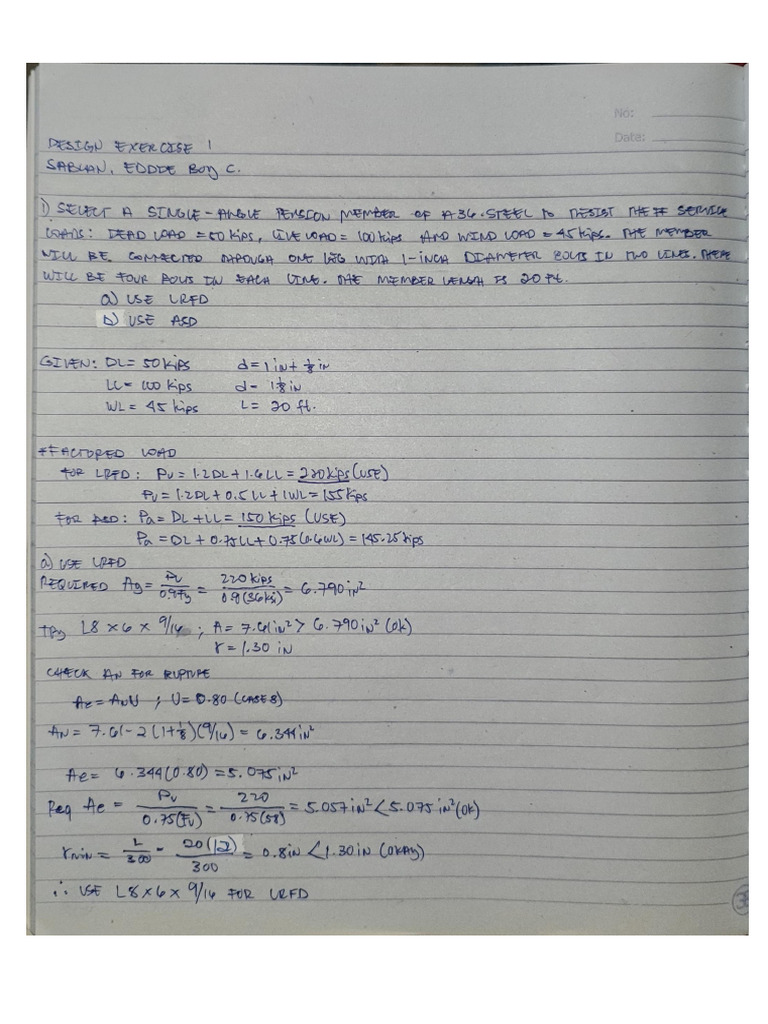 No:
Date:
DESIGN EXERCISE 1
SABLAN, EDDIE BOY C.
1) SELECT A SINGLE-ANGLE TENSION MEMBER OF A36 STEEL TO RESIST THE SERVICE
LOADS: DEAD LOAD = 50 kips, LIVE LOAD = 100 kips AND WIND LOAD = 45 kips. THE MEMBER
WILL BE CONNECTED THROUGH ONE LEG WITH 1-inch DIAMETER BOLTS IN TWO LINES. THERE
WILL BE FOUR BOLTS IN EACH LINE. THE MEMBER LENGTH IS 20 ft.
a) USE LRFD
b) USE ASD
GIVEN: DL = 50 kips d = 1 in + 1/8 in
LL = 100 kips d = 1 1/8 in
WL = 45 kips L = 20 ft.
*FACTORED LOAD
FOR LRFD: Pu = 1.2DL + 1.6LL = 220 kips (USE)
Pu = 1.2DL + 0.5LL + 1WL = 155 kips
FOR ASD: Pa = DL + LL = 150 kips (USE)
Pa = DL + 0.75LL + 0.75(0.6WL) = 145.25 kips
a) USE LRFD
REQUIRED Ag = Pu/0.9Fy = 220 kips/0.9(36 ksi) = 6.790 in²
TRY L8 x 6 x 9/16 ; A = 7.61 in² > 6.790 in² (OK)
r = 1.30 in
CHECK AN FOR RUPTURE
Ae = ANU ; U = 0.80 (CASE 8)
AN = 7.61 - 2(1 + 1/8)(9/16) = 6.344 in²
Ae = 6.344(0.80) = 5.075 in²
Req Ae = Pu/0.75(Fu) = 220/0.75(58) = 5.057 in² < 5.075 in² (OK)
rmin = L/300 = 20(12)/300 = 0.8 in < 1.30 in (OKAY)
∴ USE L8 x 6 x 9/16 FOR LRFD